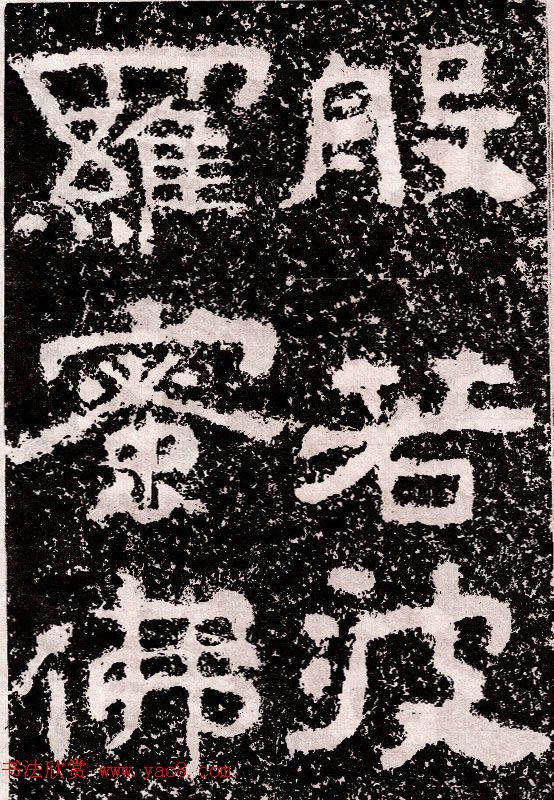 般若波
羅蜜佛
书法欣赏 www.yac8.com